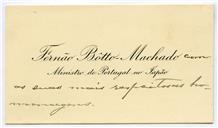 Fernão Bôtto-Machado com
Ministro de Portugal no Japão
as suas mais respeitosas ho-
menagens.